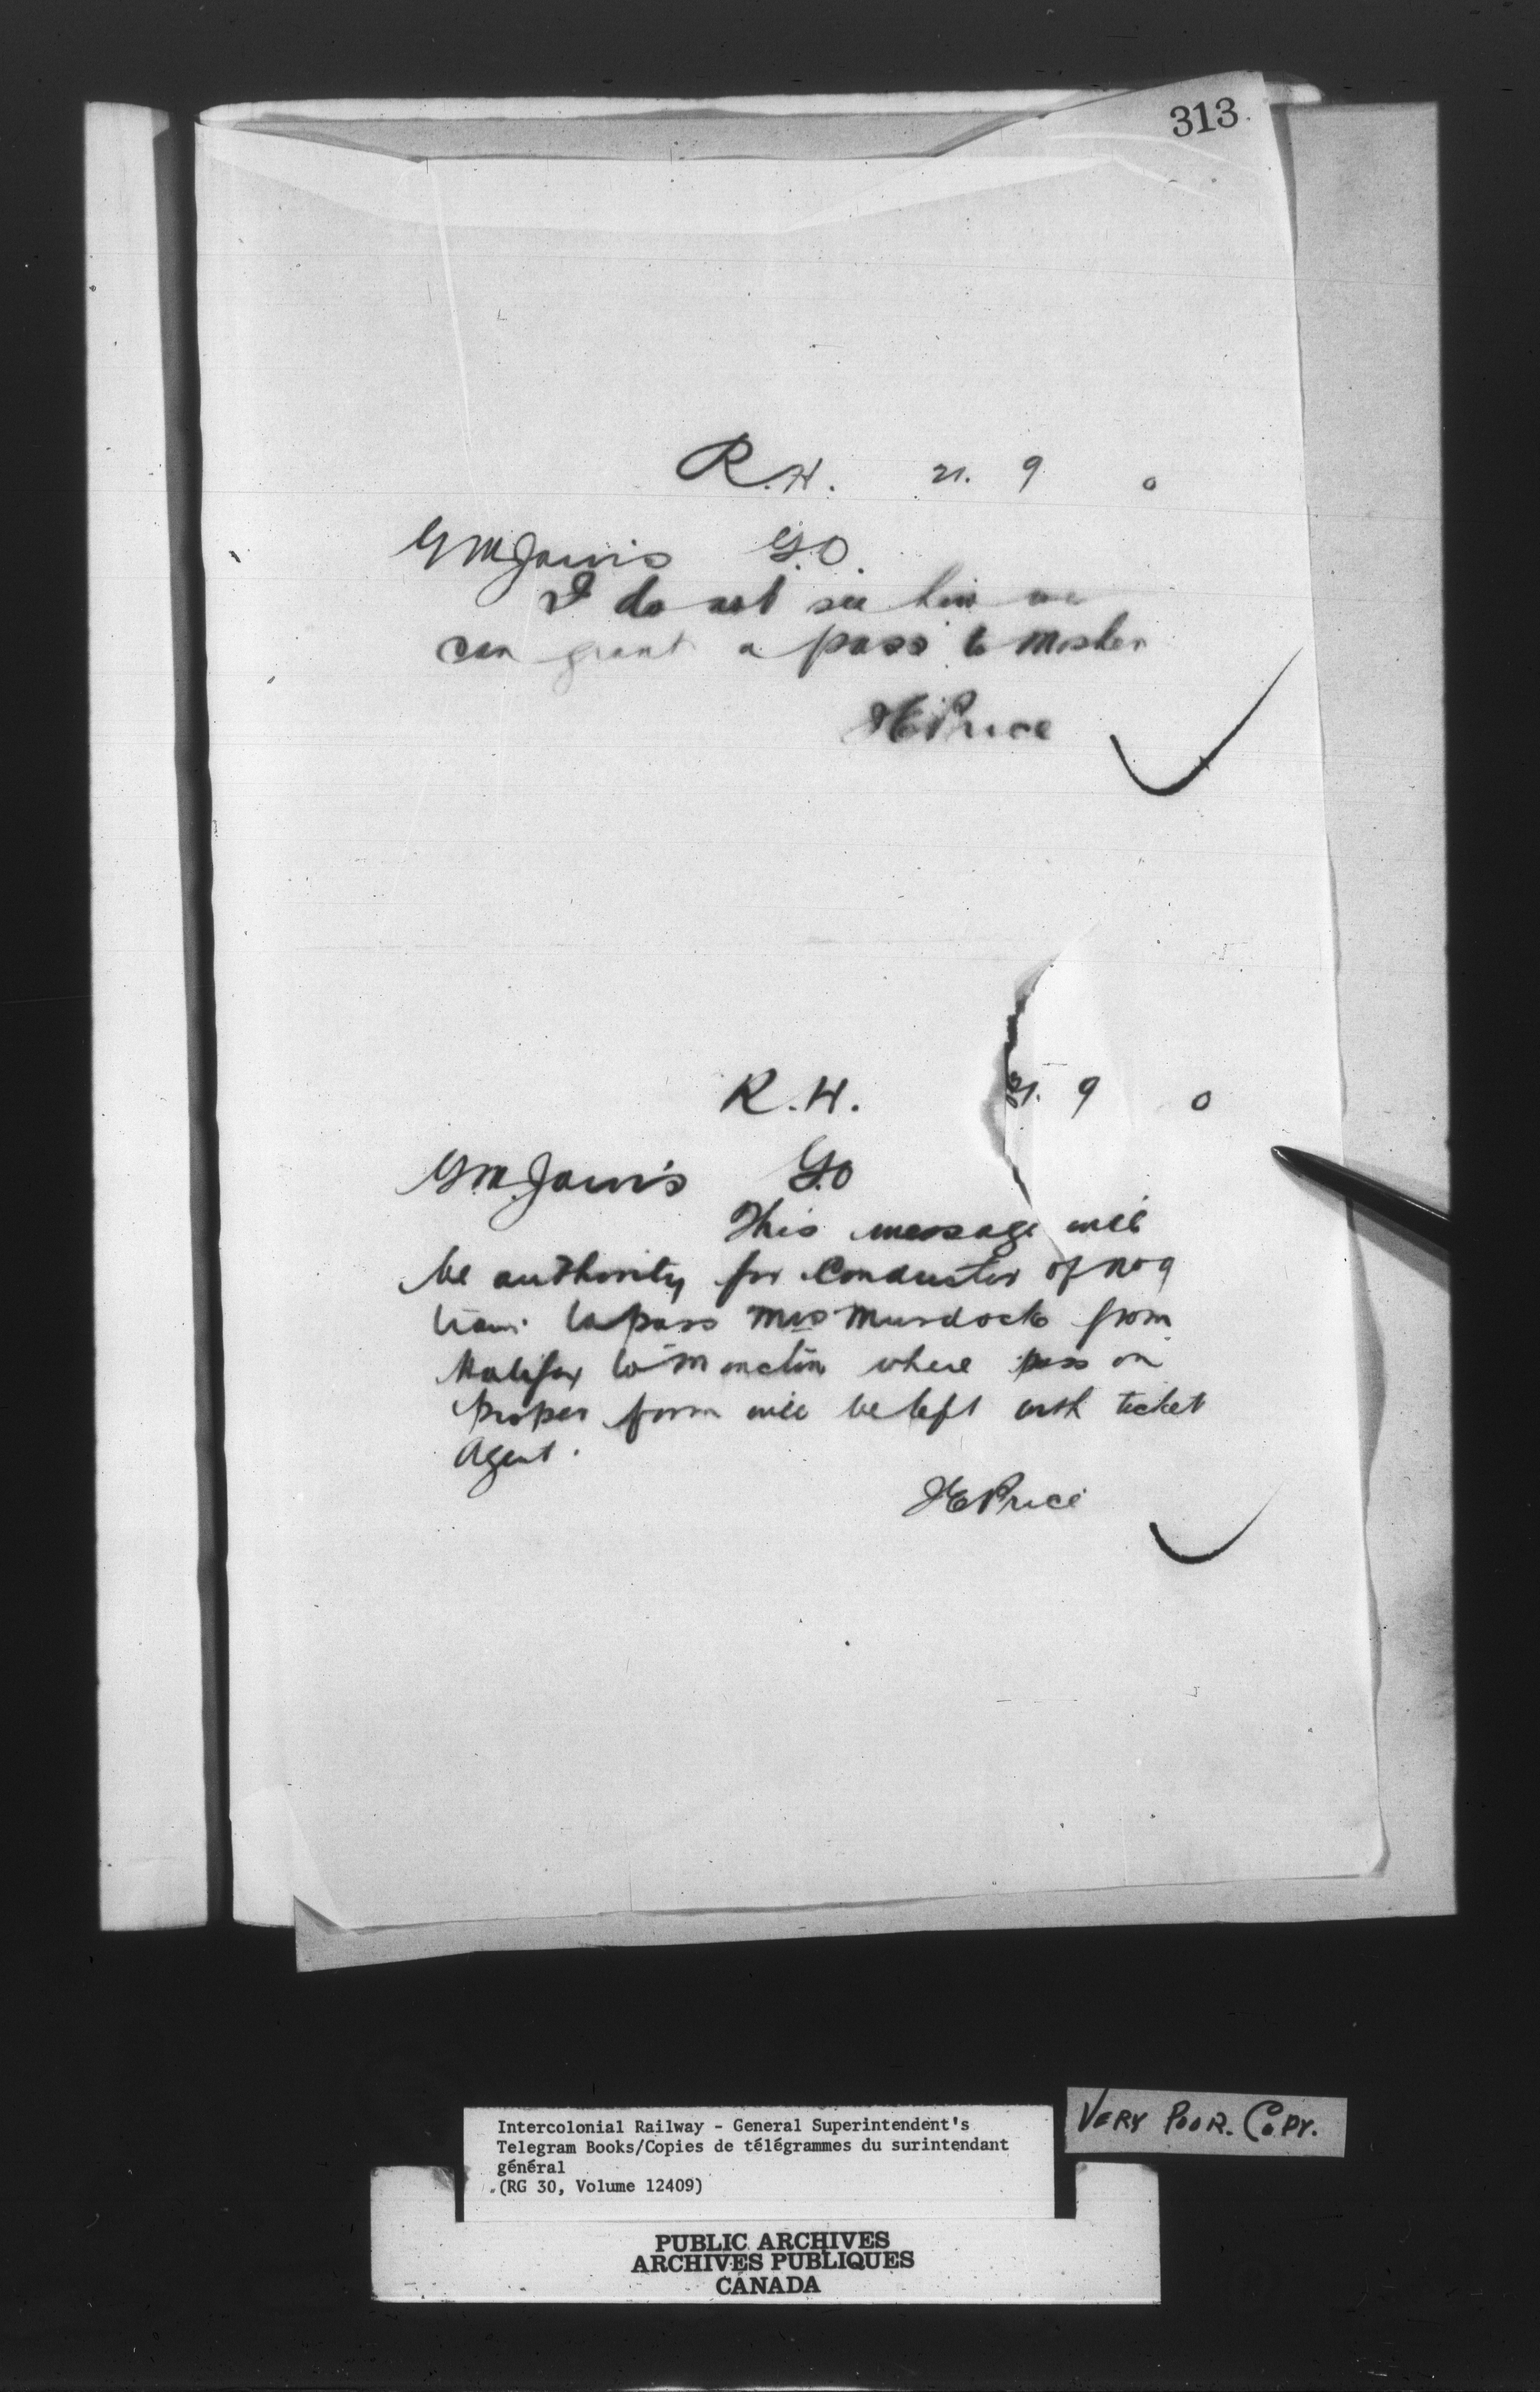 313
R.H. 21. 9 0
G M Jarvis G.O.
I do not see how we
can grant a pass to Mosher
JE Price
R.H. 21. 9 0
G.M. Jarvis G.O
This message will
be authority for Conductor of No 9
train to pass Mrs Murdock from
Halifax to Moncton where pass on
proper form will be left with ticket
Agent.
JE Price
VERY POOR. COPY.
Intercolonial Railway - General Superintendent's
Telegram Books/Copies de télégrammes du surintendant
général
(RG 30, Volume 12409)
PUBLIC ARCHIVES
ARCHIVES PUBLIQUES
CANADA